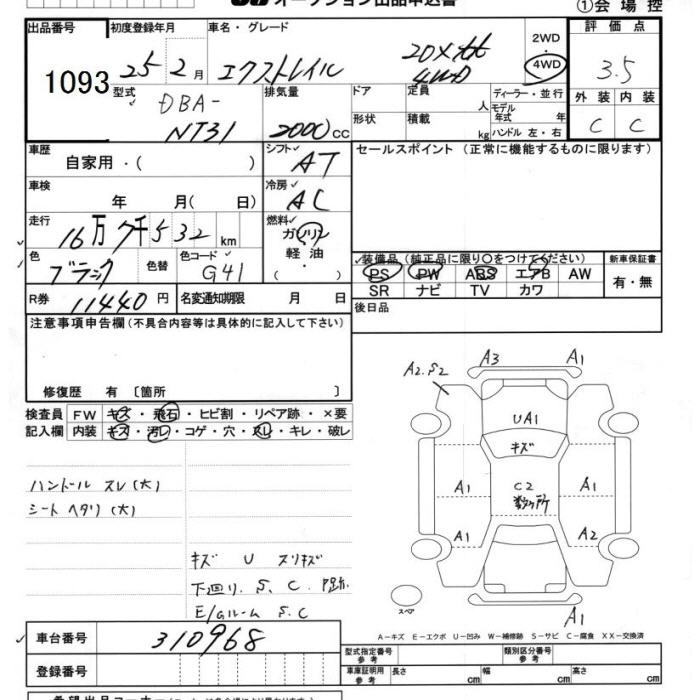 オークション出品申込書
①会場控
出品番号 初度登録年月 車名・グレード 2WD 評価点
1093 25 2月 エクストレイル 20Xtt 4WD 4WD 3.5
型式 DBA-NT31 排気量 2000cc ドア 定員 人 ディーラー・並行 外装 内装
形状 積載 kg モデル年式 年 ハンドル 左・右 C C
車歴 自家用・( ) シフト✓ AT セールスポイント (正常に機能するものに限ります)
車検 年 月( 日) 冷房✓ AC
走行 16万7千532km 燃料✓ ガソリン 軽油 ・( )
色 ブラック 色替 色コード✓ G41 ✓装備品(純正品に限り○をつけてください) 新車保証書
PS PW ABS エアB AW 有・無
SR ナビ TV カワ
R券 11440円 名変通知期限 月 日 後日品
注意事項申告欄(不具合内容等は具体的に記入して下さい)
修復歴 有 〔箇所 〕
検査員 FW キズ・飛石・ヒビ割・リペア跡・×要
記入欄 内装 キズ・汚レ・コゲ・穴・スレ・キレ・破レ
ハンドル スレ(大)
シート ヘタリ(大)
キズ U スリキズ
下回り、S、C、
E/Gルーム S.C
A2.S2 A3 A1
UA1
キズ
A1 C2 A1
数ヶ所
A1 A2
スペア A1
A-キズ E-エクボ U-凹み W-補修跡 S-サビ C-腐食 XX-交換済
車台番号 310968
型式指定番号 参考 類別区分番号 参考
登録番号 車庫証明用 参考 長さ cm 幅 cm 高さ cm